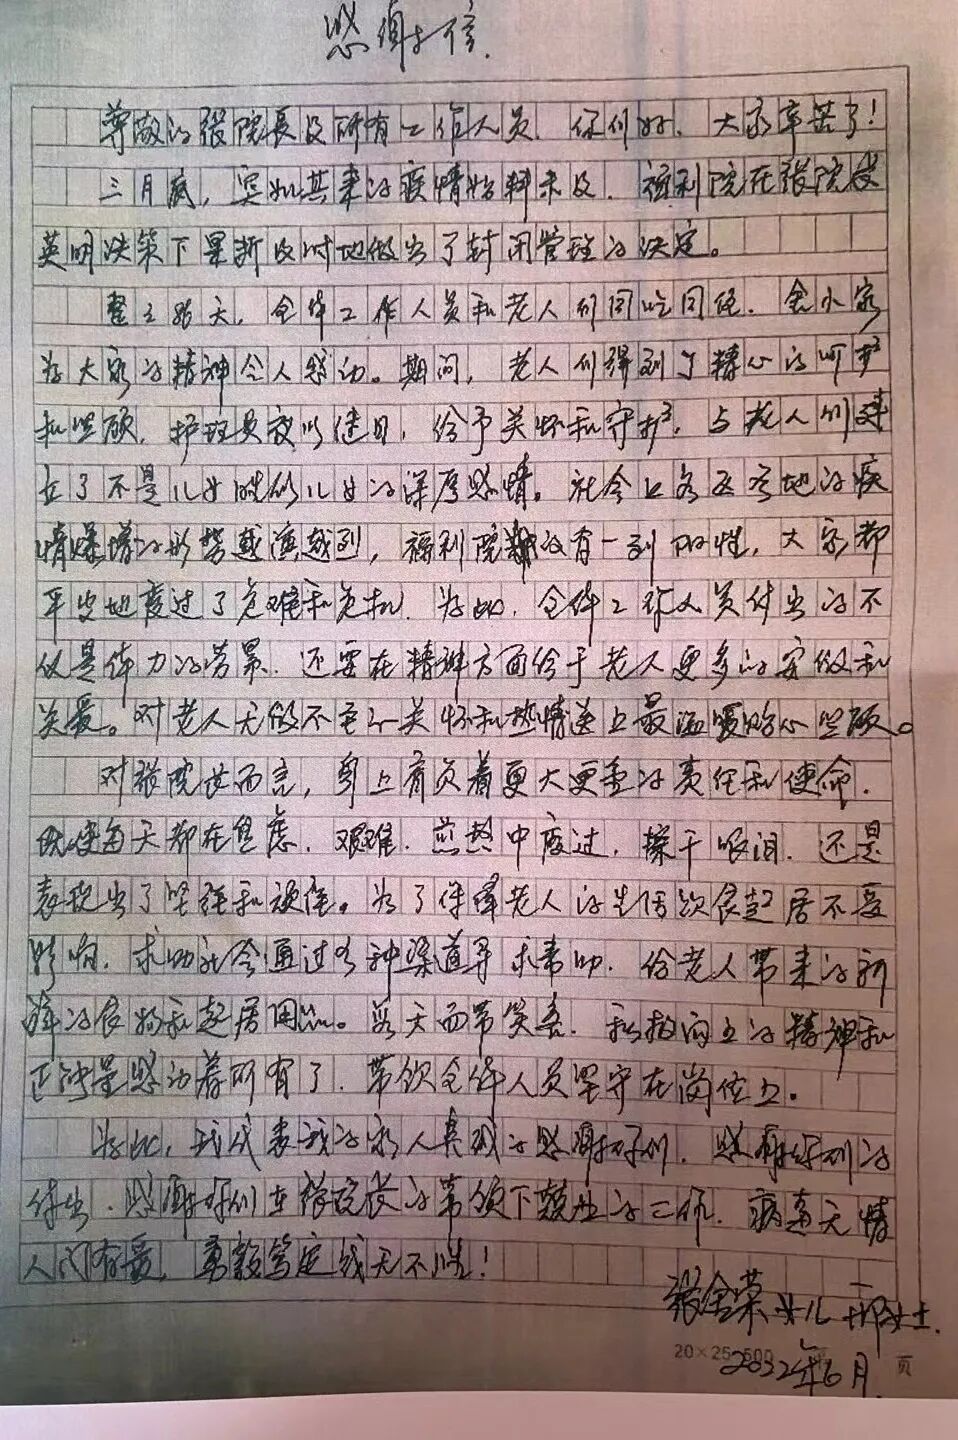 感谢信
尊敬的张院长及所有工作人员,你们好,大家辛苦了!
三月底,突如其来的疫情始料未及,福利院在张院长
英明决策下果断及时地做出了封闭管理的决定。
整之路天,全体工作人员和老人们同吃同住,舍小家
为大家的精神令人感动。期间,老人们得到了精心的呵护
和照顾,护理员夜以继日,给予关怀和守护,与老人们建
立了不是儿女胜似儿女的深厚感情。社会上各区各地的疫
情爆增的形势越演越烈,福利院没有一列阳性,大家都
平安地度过了危难和危机,为此,全体工作人员付出的不
仅是体力的劳累,还要在精神方面给于老人更多的安慰和
关爱。对老人无微不至的关怀和热情送上最温暖贴心照顾。
对张院长而言,身上肩负着更大更重的责任和使命,
既使每天都在焦虑、艰难、煎熬中度过,擦干眼泪,还是
表现出了坚强和硬强。为了保障老人的生活饮食起居不受
影响,求助社会通过各种渠道寻求帮助,给老人带来的新
鲜的食物和起居用品。每天面带笑容,积极向上的精神和
正能量感动着所有了,带领全体人员坚守在岗位上。
为此,我代表我的家人真诚的感谢你们,感谢你们的
付出,感谢你们在张院长的带领下赞出的工作,病毒无情
人间有爱,勇毅笃定战无不胜!
张金荣女儿 邢女士
2022年6月
20×25=500 页